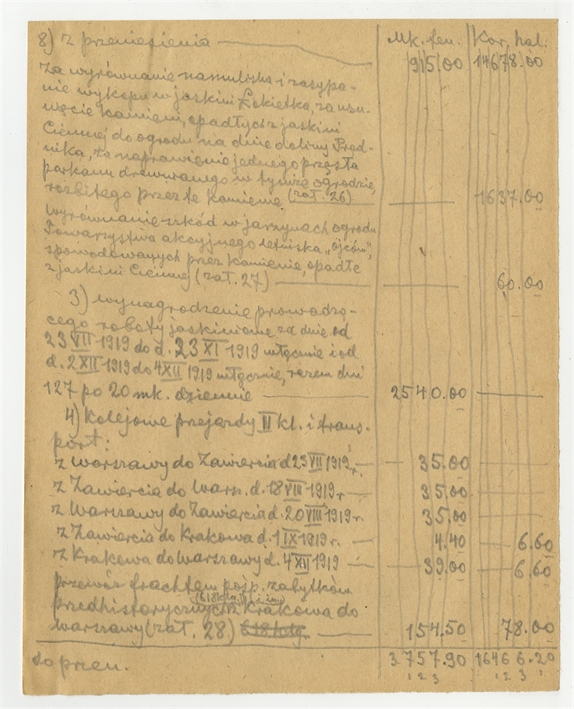 8) z przeniesienia Mk. fen. Kor. hal.
915.00 14678.00
Za wyrównanie namuliska i zasypa-
nie wykopu w jaskini Łokietka, za usu-
nięcie kamieni, opadłych z jaskini
Ciemnej do ogrodu na dnie doliny Prąd-
nika, za naprawienie jednego przęsła
parkanu drewnianego w tymże ogrodzie,
rozbitego przez te kamienie (zał. 26) — 1637.00
Wyrównanie szkód w jarzynach ogrodu
Towarzystwa akcyjnego letniska „Ojców",
spowodowanych przez kamienie, opadłe
z jaskini Ciemnej (zał. 27) — 60.00
3) wynagrodzenie prowadzą-
cego roboty jaskiniowe za dnie od
23 VII 1919 do d. 23 XI 1919 włącznie i od
d. 2 XII 1919 do 4 XII 1919 włącznie, razem dni
127 po 20 mk. dziennie — 2540.00 —
4) Kolejowe przejazdy II kl. i trans-
port:
z Warszawy do Zawiercia d. 23 VII 1919 r. — 35.00 —
z Zawiercia do Warsz. d. 18 VIII 1919 r — 35.00 —
z Warszawy do Zawiercia d. 20 VIII 1919 r. 35.00
z Zawiercia do Krakowa d. 1 IX 1919 r. — 4.40 6.60
z Krakowa do Warszawy d. 4 XII 1919 — 39.00 6.60
przewóz frachtem pośp. zabytków
(618 klg.)
przedhistorycznych z Krakowa do
Warszawy (zał. 28) 618 klg. — 154.50 78.00
do przen. 3757.90 16466.20
1 2 3 1 2 3